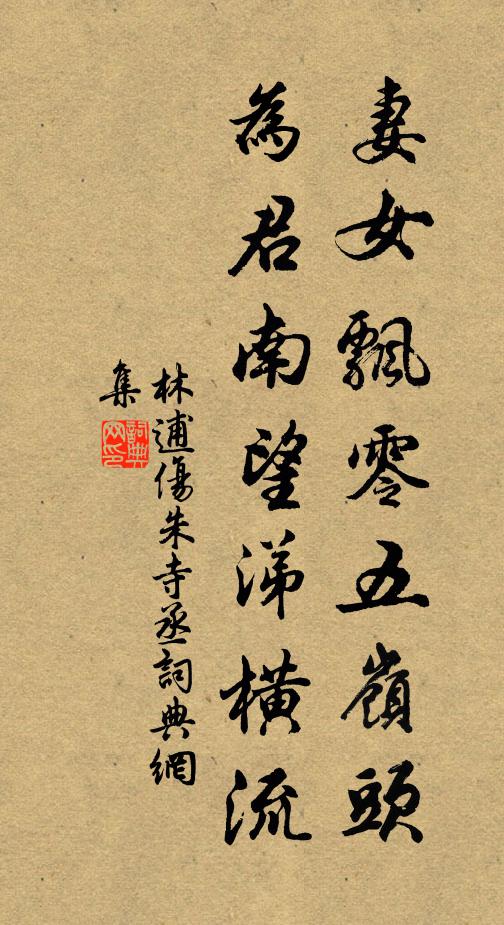 妻女飄零五嶺頭
為君南望涕橫流
林逋傷朱寺丞詞典網
集
詞典
网印